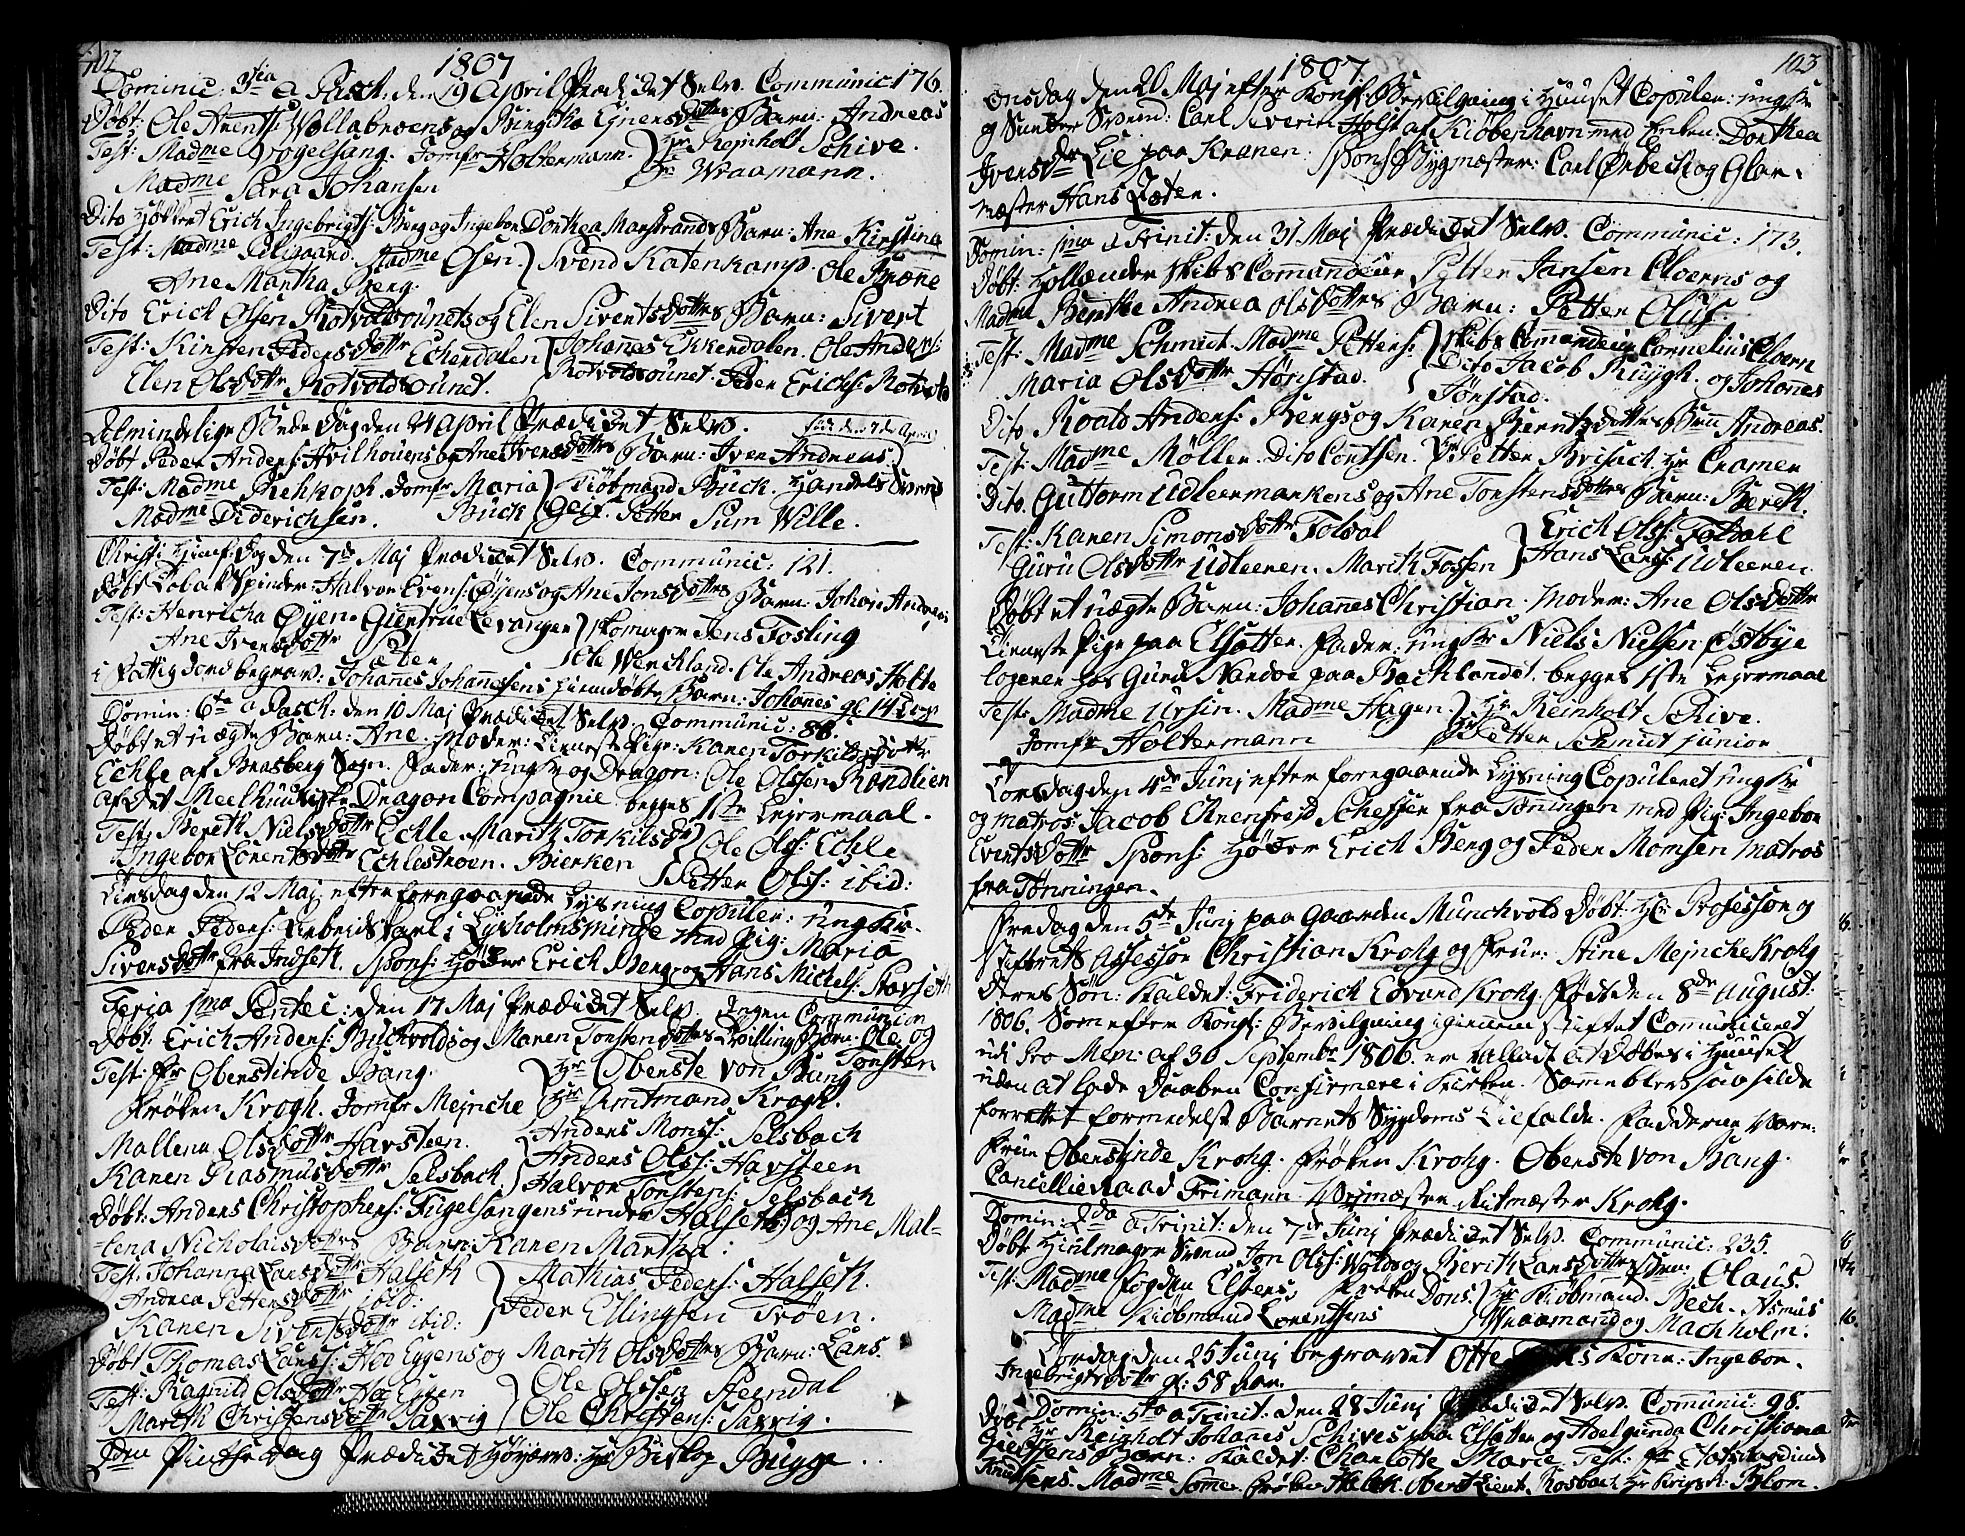 102
1807
Dominic: 3tia a Pasch: den 19 April Prædicket Selv. Communic: 176.
Døbt: Ole Arents: Wollabroens og Birgitha Ejnersdotters Barn: Andreas
Test: Madme Vogelsang. Jomfr Holtermann. Hr Rejnholt Schive.
Madme Sara Johansen Hr Wraamann.
Dito Erich Ingebrigts: Berg og Ingebor Dorthea Marstrands Barn: Ane Kirstina
Test: Madme Osen Svend Katenkamp. Ole Bræne
Ane Martha Berg.
Dito Erich Olsen Rotvoldsounets og Elen Sivertsdotters Barn: Sivert
Test: Kirsten Pedersdottr Echerdalen Johanes Ekkerdalen. Ole Anders:
Elen Olsdottr Rotvoldsounet. Rotvoldsounet. Peder Erichs: Rotvold
Almindelige Bededag den 24 April Prædicket Selv.
Døbt Peder Anders: og Ane Iversdotters Barn: Iver Andreas
Test: Madme Rehkoph. Jomfr Maria Buck Kiøbmand Buck. Handels Svend
Madme Diderichsen. Petter Sum Wille.
Christi Himmelf: Dag den 7de Maj Prædicket Selv. Communic: 121.
Døbt Tobakspinder: Halvor Evens: Øyens og Ane Jonsdotters Barn: Johan Andreas
Test: Henricha Øyen. Giertrue Levangen Skomager Jens Fosling
Ane Iversdottr Ole Werckland. Ole Andreas Holte
i Fattig Jord begrav: Johanes Johannesens Hiemdøbte Barn: Johanes gl 14 Dage
Domin: 6ta a Pasch: den 10 Maj Prædicket Selv. Communic: 86.
Døbt et uægte Barn: Ane. Moder: Tieneste Pige: Karen Torkildsdottr
Echle af Brasberg Sogn. Fader: ungkr og Dragon: Ole Olsen Randlien
af det Meelhuuske Dragon Compagnie begges 1ste Lejermaal.
Test: Bereth Nielsdottr Echle Marith Torkilsd Ole Ols: Echle
Ingebor Lorentsdottr Echlestroen. Bierken Petter Ols: ibid:
Tirsdag den 12 Maj efter foregaaende Lysning Copuler: ungkr.
Peder Peders: Arbeidskarl i Lysholmsminde med Pig: Maria
Siversdottr fra Indseth. Spons: Erich Berg og Hans Michels: Stavseth
Feria 1ma Pentec: den 17 Maj Prædicket Selv. Ingen Communion
Døbt: Erich Anders: Buchvolds og Maren Torstensdotters Tvilling Børn: Ole og Torsten
Test: Fr Oberstinde Bang. Hr Oberste von Bang
Frøken Krogh. Jomfr Mejnche Hr Amtmand Krogh.
Mallena Olsdottr Havsteen. Anders Mons: Selsbach
Karen Rasmusdottr Selsbach. Anders Ols: Havsteen
Halvor Torstens: Selsbach
Døbt: Anders Christophers: Fuglesangens under Halseth og Ane Mal-
lena Nicholaisdotters Barn: Karen Martha:
Test: Johanna Larsdottr Halseth Mathias Peders: Halseth.
Andrea Pettersdottr ibid: Peder Ellingsen Trøen.
Karen Sivertsdottr ibid:
Døbt Thomas Lars: Hoe Eggens og Marith Olsdotters Barn: Lars.
Test: Ragnild Olsdottr Hoe Eggen Ole Olsen Steendal
Marith Christensdottr Saxvig Ole Christens: Saxvig.
2den Pintse Dag Prædicket Hr Biskop Bugge.
103
1807
Onsdag den 20 Maj efter Kongl: Bevilgning i Huuset Copuler: ungkr
og Svend: Carl Severin Holst af Kiøbenhavn med Frøken: Dorthea
Iversdtr Lie paa Kranen: Spons: Bygmæster: Carl Ørbeck og Glar-
mæster Hans Zæter.
Domin: 1ma a Trinit: den 31 Maj Prædicket Selv. Communic: 173.
Døbt: Hollænder Skibs Commandeur Petter Jansen Cloerns og
Madme Benthe Andrea Olsdotters Barn: Petter Oluf.
Test: Madme Schmidt. Madme Petters: Skibs Commandeur Cornelius Cloern
Maria Olsdottr Hørstad. Dito Jacob Ruygh. og Johannes
Jørstad.
Dito Roald Anders: Bergs og Karen Berntsdotters Barn Andreas.
Test: Madme Møller. Dito Conssen. Hr Petter Brisack. Hr Cramer
Dito. Guttorm Udleermarkens og Ane Torstensdotters Barn: Bereth.
Test: Karen Simonsdottr Foldal Erich Ols: Foldahl
Guru Olsdottr Udleeren. Marith Fossen Hans Lars: Udleeren.
Døbt et uægte Barn: Johanes Christian. Moder: Ane Olsdottr
Tieneste Pige paa Elsætter. Fader: ungkr Niels Nielsen Østbye
logerer hos Guru Nardoe paa Backlandet. begges 1ste Lejermaal
Test: Madme Ursin. Madme Hagen. Hr Reinholt Schive.
Jomfr Holtermann Hr Petter Schmit junior
Torsdag den 4de Junj efter foregaaende Lysning Copuleret ungkr
og matros: Jacob Ehrenfrejd Scheffer fra Tønningen med Pig: Ingebor
Evertsdottr Spons: Erich Berg og Peder Momsen matros
fra Tønningen.
Fredag den 5te Junj paa Gaarden Munchvold Døbt: Hr Professor og
Stiftrets Assessor Christian Krohg og Frue: Stine Mejncke Krohg
deres Søn: kaldet: Friderich Edvard Krohg. Født den 8de August:
1806. Som efter Kongl: Bevilgning igiennem Stiftet Comuniceret
udi Pro Mem: af 30 September 1806. er tilladt at Døbes i Huuset
uden at lade Daaben Confirmere i Kirken. Samme blev saa silde
forrettet formedelst Barnets Sygdoms Tilfælde. Fadderne vare:
Frue Oberstinde Krohg. Frøken Krohg. Oberste von Bang.
Cancellieraad Frimann Ritmæster Krohg.
Domin: 2da a Trinit: den 7de Junj Prædicket Selv. Communic: 235.
Døbt Hiulmager Svend Jon Ols: Wolds og Berith Larsdotters Søn: Olaus.
Test: Madme Fogden Elsters. Frøken Dons: Hr Kiøbmand Bech. Asmus
Madme Kiøbmand Lorentsens Wraamand og Machholm.
Lørdag den 25 Junj begravet Otte Kone: Ingebor.
Ingebrigtsdottr gl: 58 Aar.
Domin: 5ta a Trinit: den 28 Junj Prædicket Selv. Comunic: 98.
Døbt Hr Reinholt Johanes Schives paa Elsætter og Adelgunda Christiana
Barn: Kaldet: Charlotte Marie Test: Fr Etatsraadinde
Knudtsens. Madme Somer. Frøken Oberst Lieut: Rosbach Blom.